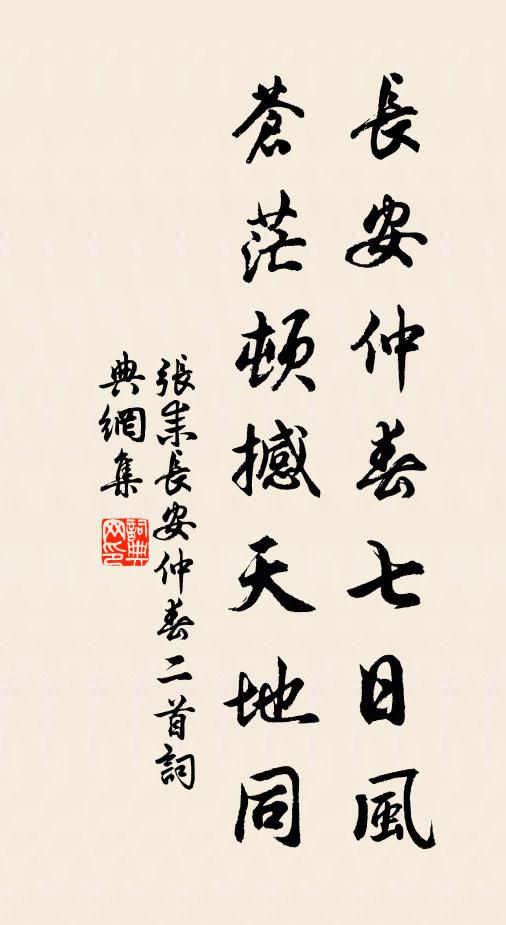 長安仲春七日風
蒼茫頓撼天地同
張耒長安仲春二首詞
典網集
詞典网印